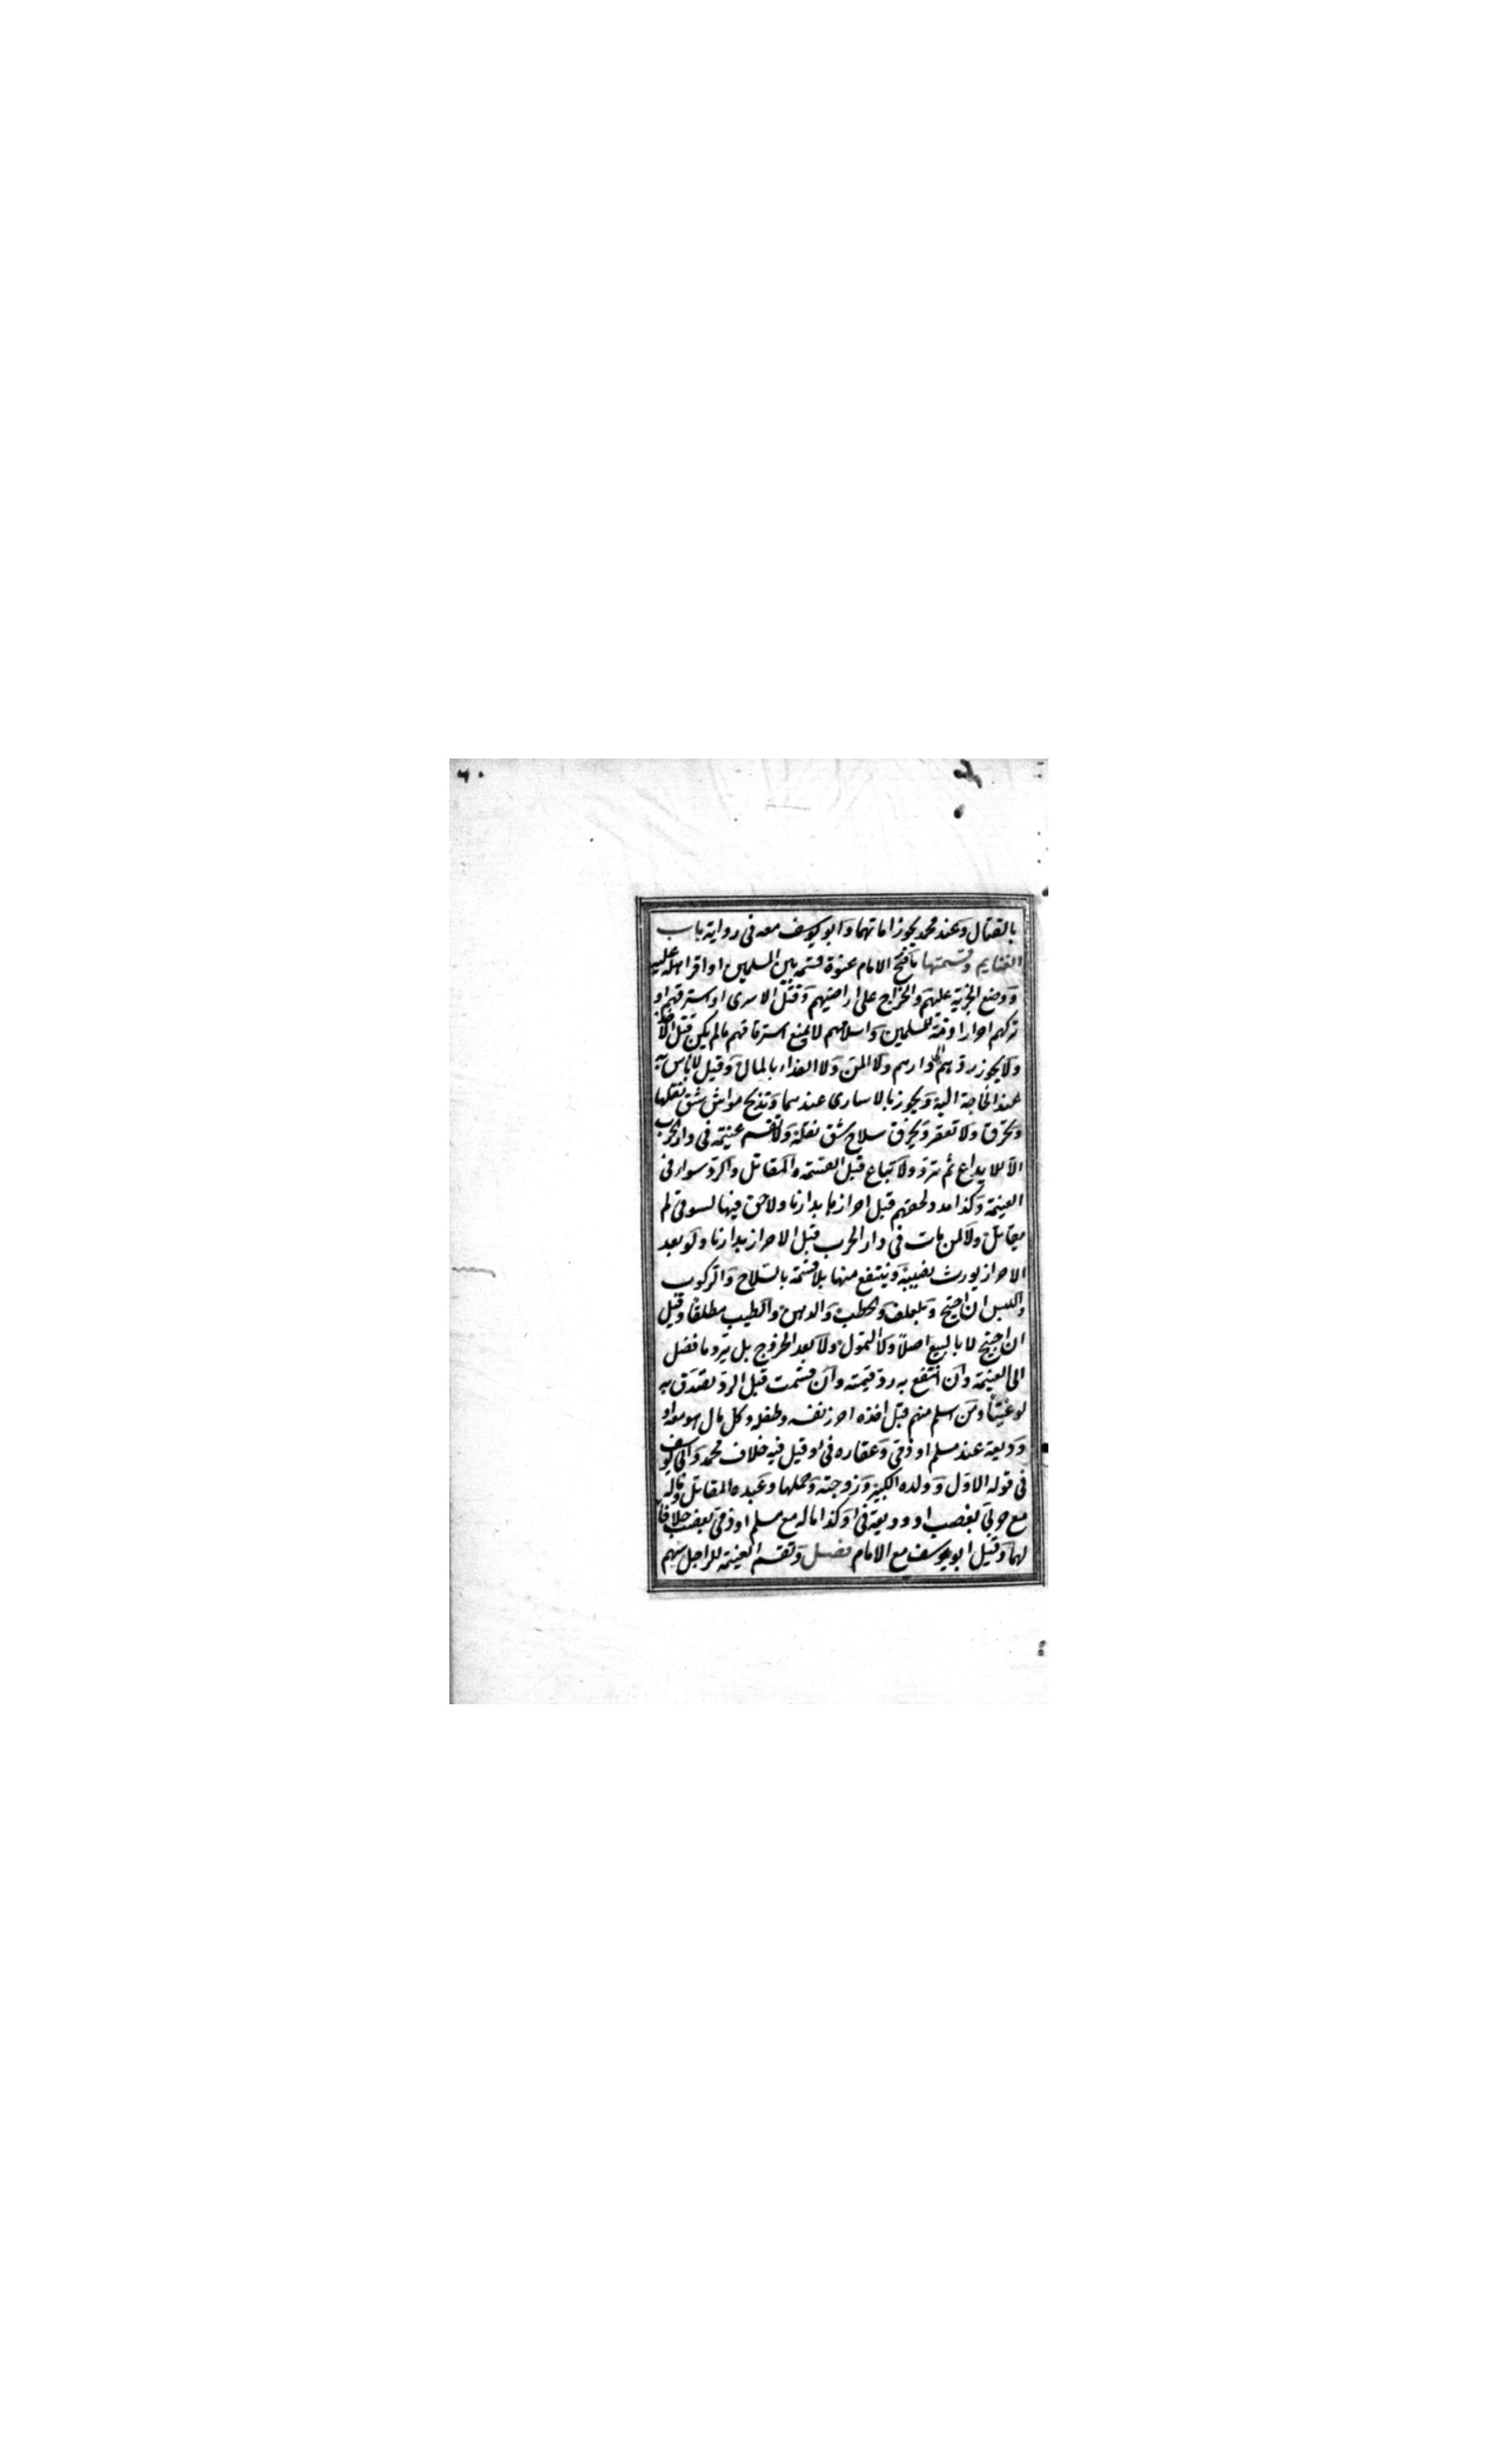 ٦٠
بالقتال وعند محمد يجوز امانهما وابو يوسف معه فى رواية باب
الغنايم وقسمتها ما فتح الامام عنوة قسمه بين المسلمين او اقر اهله عليه
ووضع الجزية عليهم والخراج على اراضيهم وقتل الاسرى او استرقهم او
تركهم احرارا ذمة للمسلمين واسلامهم لا يمنع استرقاقهم ما لم يكن قبل الاخذ
ولا يجوز ردهم الى دارهم ولا المن ولا الفداء بالمال وقيل لا باس به
عند الحاجة اليه ويجوز بالاسارى عندهما وتذبح مواش شق نقلها
وتحرق ولا تعقر ويحرق سلاح شق نقله ولا تقسم غنيمة فى دار الحرب
الا للايداع ثم ترد ولا تباع قبل القسمة والمقاتل والردء سواء فى
الغنيمة وكذا مدد لحقهم قبل احرازها بدارنا ولا حق فيها لسوقى لم
يقاتل ولا لمن مات فى دار الحرب قبل الاحراز بدارنا ولو بعد
الاحراز يورث نصيبه وينتفع منها بلا قسمة بالسلاح والركوب
واللبس ان احتيج وبالعلف والحطب والدهن والطيب مطلقا وقيل
ان احتيج لا بالبيع اصلا ولا التمول ولا بعد الخروج بل يرد ما فضل
الى الغنيمة وان انتفع به رد قيمته وان قسمت قبل الرد تصدق به
لو غنيا ومن اسلم منهم قبل اخذه احرز نفسه وطفله وكل مال هو معه او
وديعة عند مسلم او ذمى وعقاره فىء وقيل فيه خلاف محمد وابى يوسف
فى قوله الاول وولده الكبير وزوجته وحملها وعبده المقاتل وماله
مع حربى بغصب او وديعة فىء وكذا ماله مع مسلم او ذمى بغصب خلافا
لهما وقيل ابو يوسف مع الامام فصل وتقسم الغنيمة للراجل سهم